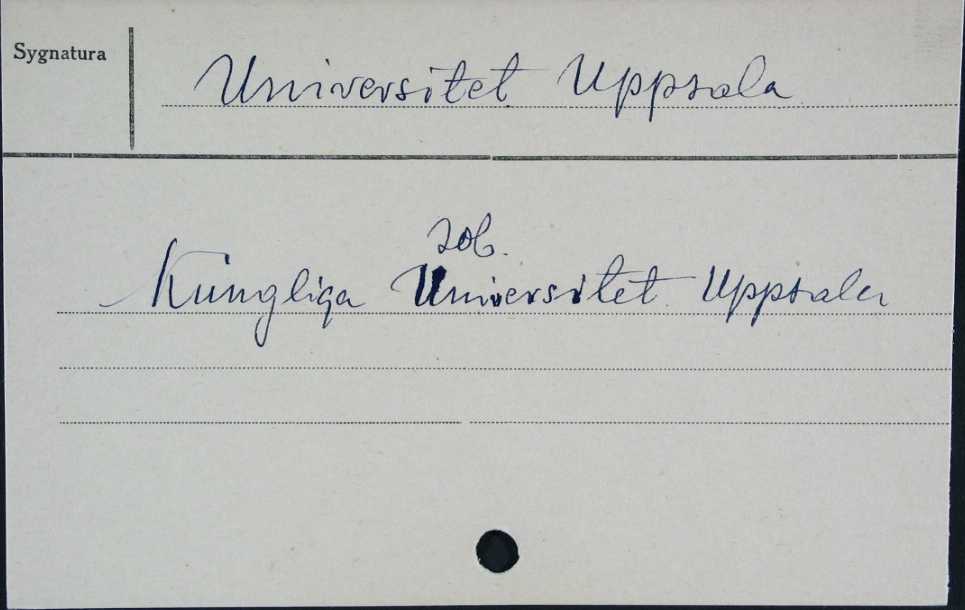 Sygnatura
Universitet Uppsala
zob.
Kungliga Universitet Uppsala